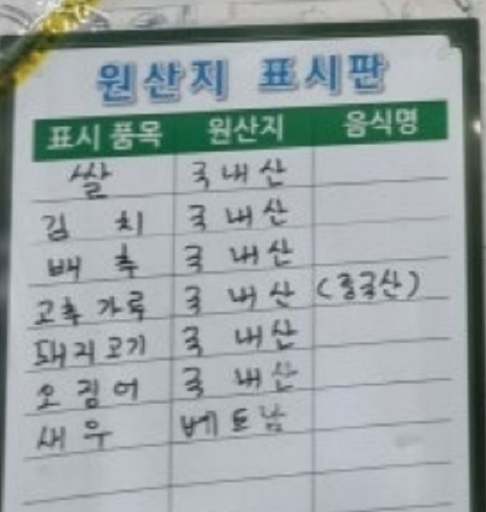 원산지 표시판
표시 품목 원산지 음식명
쌀 국내산
김 치 국내산
배 추 국내산
고추가루 국내산 (중국산)
돼지고기 국내산
오징어 국내산
새우 베트남